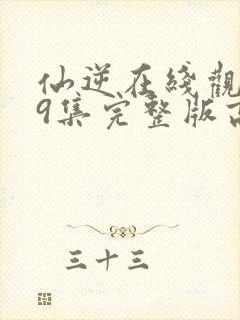 仙逆在綫觀
9集完整版高
三十三